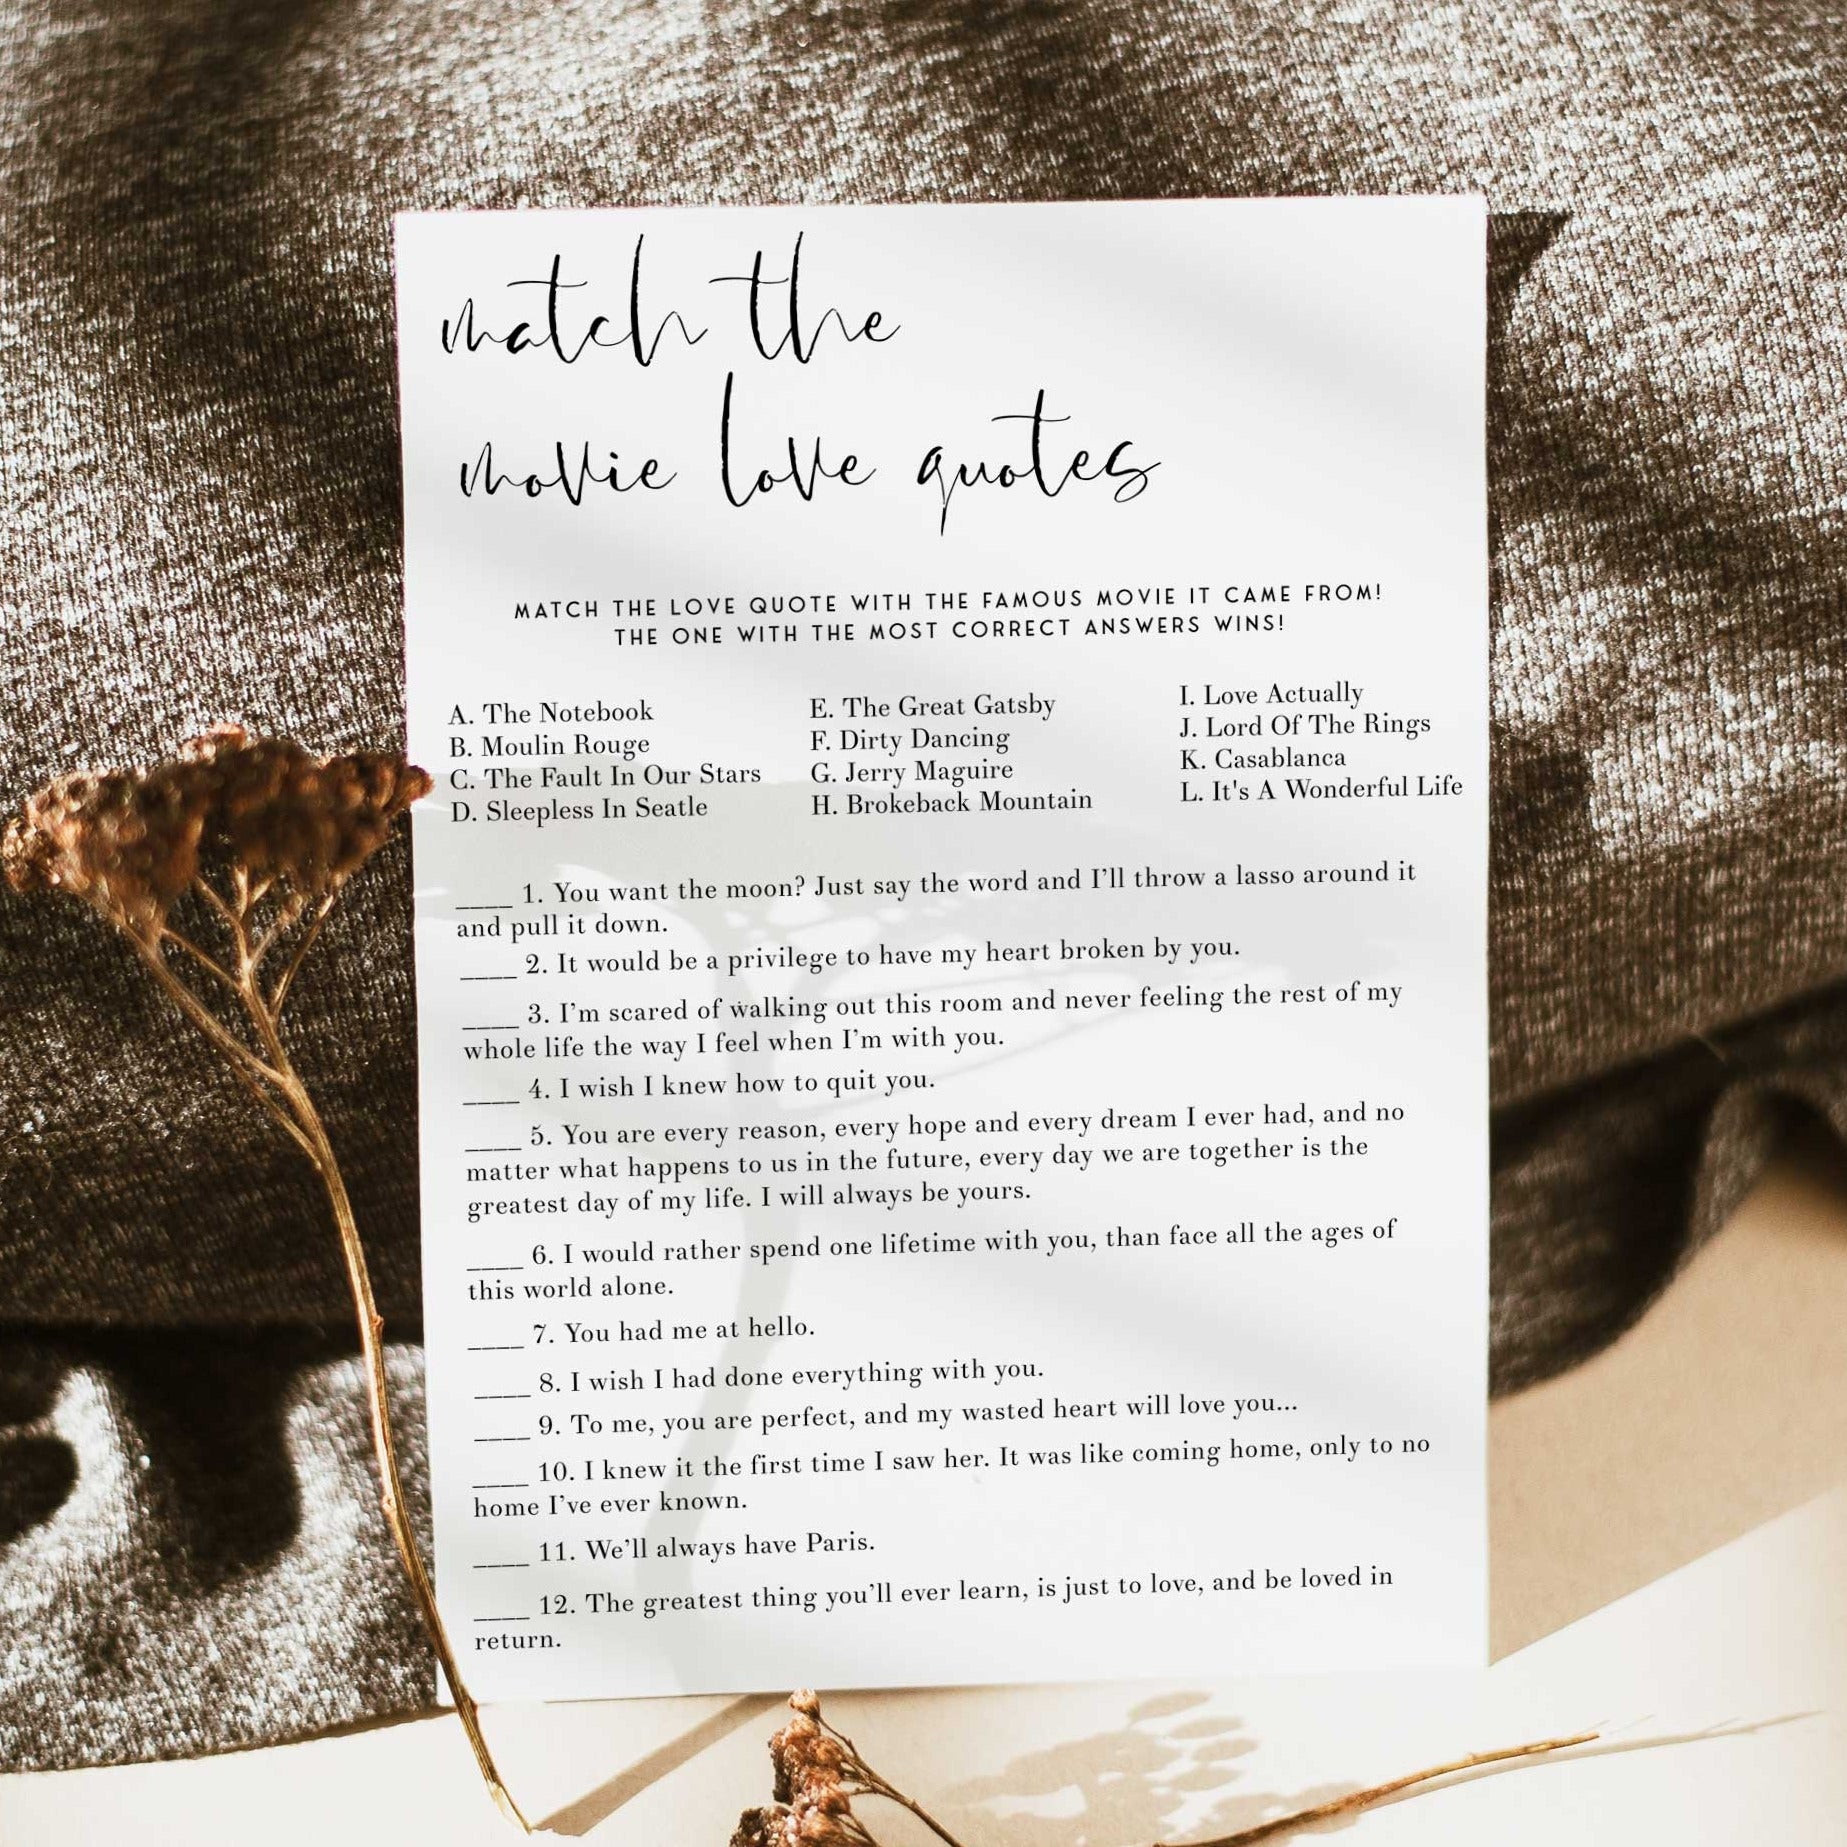 match the
movie love quotes
MATCH THE LOVE QUOTE WITH THE FAMOUS MOVIE IT CAME FROM!
THE ONE WITH THE MOST CORRECT ANSWERS WINS!
A. The Notebook
B. Moulin Rouge
C. The Fault In Our Stars
D. Sleepless In Seatle
E. The Great Gatsby
F. Dirty Dancing
G. Jerry Maguire
H. Brokeback Mountain
I. Love Actually
J. Lord Of The Rings
K. Casablanca
L. It's A Wonderful Life
____ 1. You want the moon? Just say the word and I’ll throw a lasso around it
and pull it down.
____ 2. It would be a privilege to have my heart broken by you.
____ 3. I’m scared of walking out this room and never feeling the rest of my
whole life the way I feel when I’m with you.
____ 4. I wish I knew how to quit you.
____ 5. You are every reason, every hope and every dream I ever had, and no
matter what happens to us in the future, every day we are together is the
greatest day of my life. I will always be yours.
____ 6. I would rather spend one lifetime with you, than face all the ages of
this world alone.
____ 7. You had me at hello.
____ 8. I wish I had done everything with you.
____ 9. To me, you are perfect, and my wasted heart will love you...
____ 10. I knew it the first time I saw her. It was like coming home, only to no
home I’ve ever known.
____ 11. We’ll always have Paris.
____ 12. The greatest thing you’ll ever learn, is just to love, and be loved in
return.